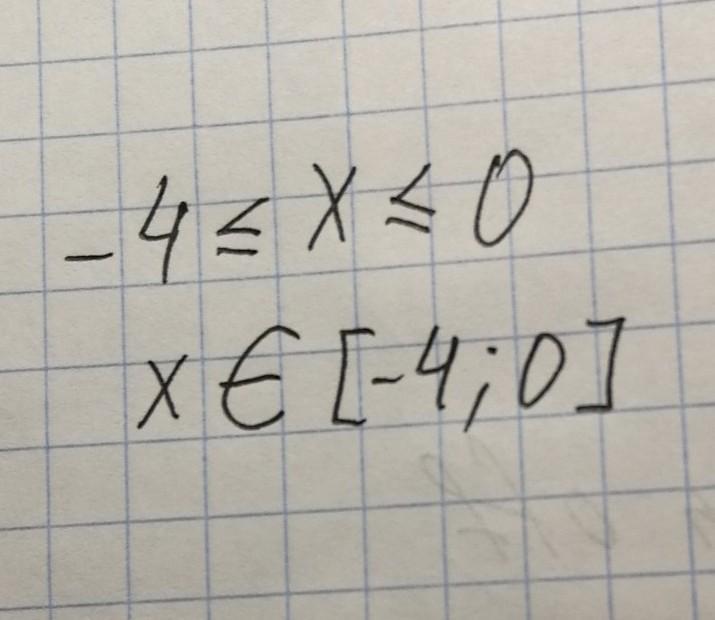 -4 ≤ x ≤ 0
x ∈ [-4; 0]